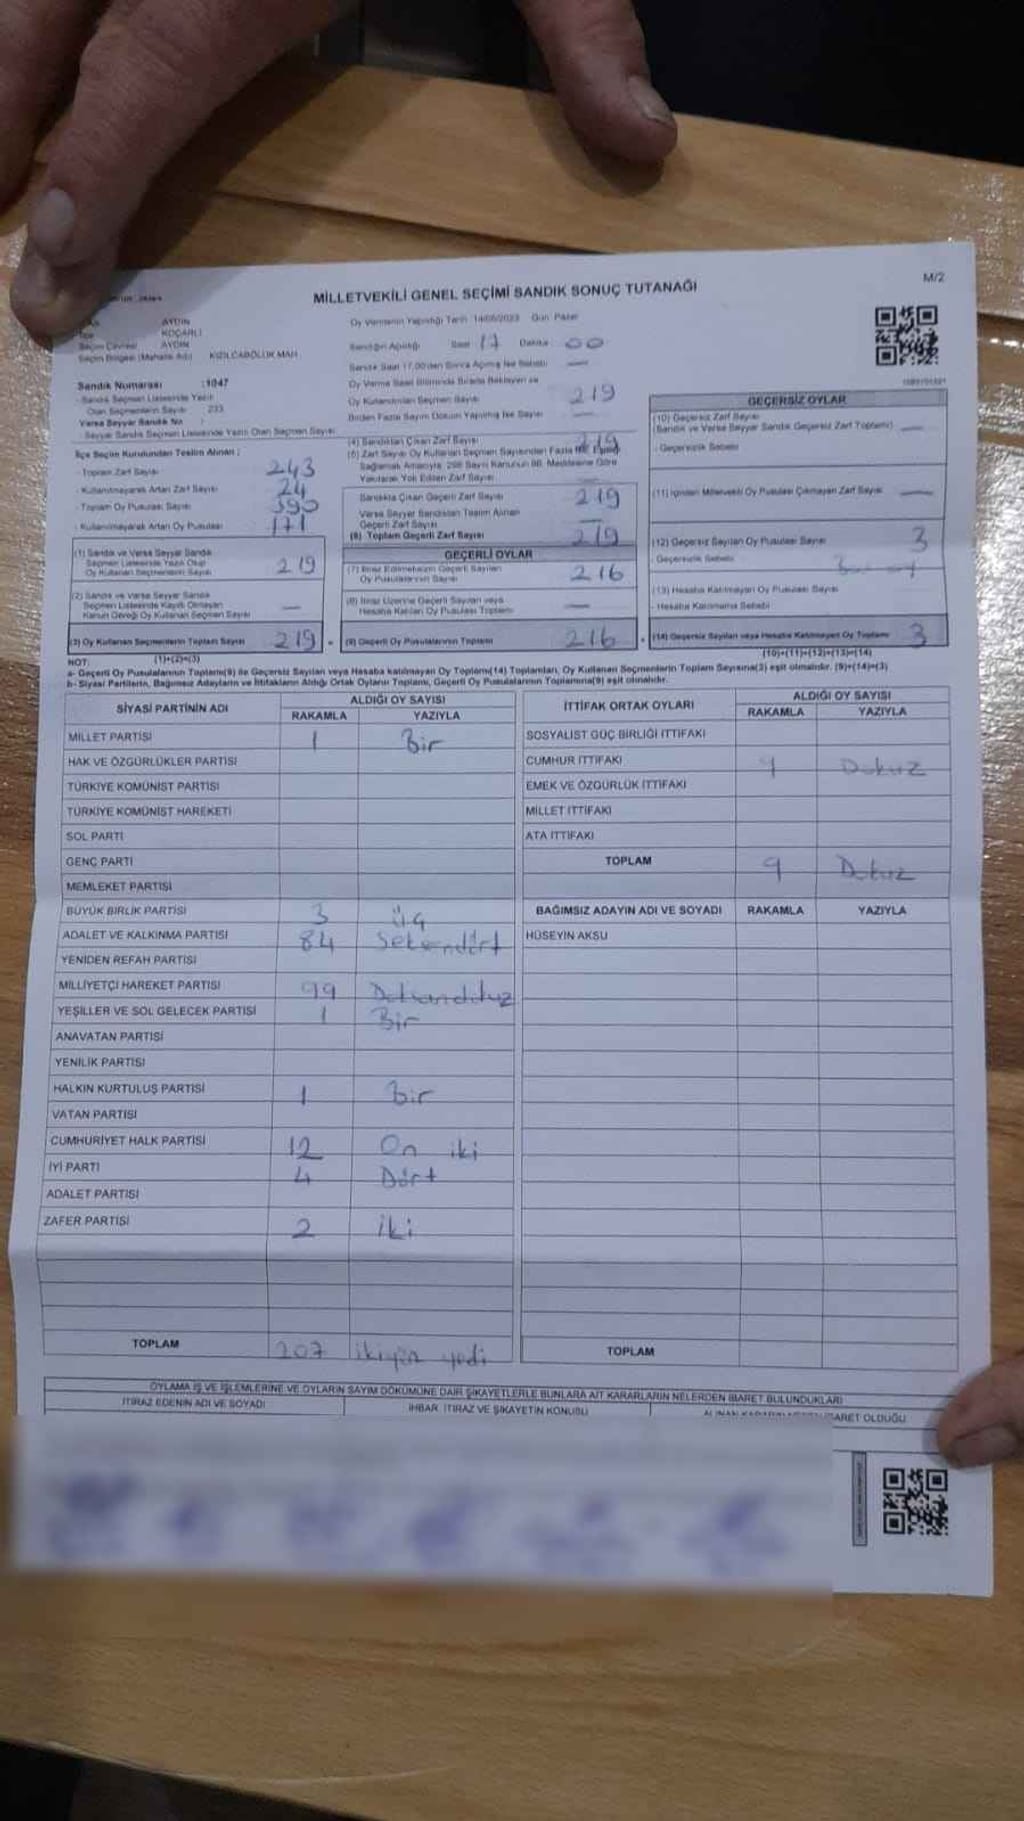 M/2
MİLLETVEKİLİ GENEL SEÇİMİ SANDIK SONUÇ TUTANAĞI
AYDIN
İlçe KOÇARLI
Seçim Çevresi AYDIN
Seçim Bölgesi (Mahalle Adı) KIZILCABÖLÜK MAH
Oy Vermenin Yapıldığı Tarih 14/05/2023 Gün Pazar
Sandığın Açıldığı Saat 17 Dakika 00
Sandık Saat 17.00'den Sonra Açılmış İse Sebebi —
Sandık Numarası :1047
Sandık Seçmen Listesinde Yazılı
Olan Seçmenlerin Sayısı 233
Varsa Seyyar Sandık No
Seyyar Sandık Seçmen Listesinde Yazılı Olan Seçmen Sayısı
Oy Verme Saati Bitiminde Sırada Bekleyen ve
Oy Kullandırılan Seçmen Sayısı 219
Birden Fazla Sayım Döküm Yapılmış İse Sayısı —
İlçe Seçim Kurulundan Teslim Alınan ;
- Toplam Zarf Sayısı 243
- Kullanılmayarak Artan Zarf Sayısı 24
- Toplam Oy Pusulası Sayısı 390
- Kullanılmayarak Artan Oy Pusulası 171
(1) Sandık ve Varsa Seyyar Sandık
Seçmen Listesinde Yazılı Olup
Oy Kullanan Seçmenlerin Sayısı 219
(2) Sandık ve Varsa Seyyar Sandık
Seçmen Listesinde Kayıtlı Olmayan
Kanun Gereği Oy Kullanan Seçmen Sayısı —
(3) Oy Kullanan Seçmenlerin Toplam Sayısı 219
(1)+(2)=(3)
(4) Sandıktan Çıkan Zarf Sayısı 219
(5) Zarf Sayısı Oy Kullanan Seçmen Sayısından Fazla İse Eşitliği
Sağlamak Amacıyla 298 Sayılı Kanunun 98. Maddesine Göre
Yakılarak Yok Edilen Zarf Sayısı
Sandıkta Çıkan Geçerli Zarf Sayısı 219
Varsa Seyyar Sandıktan Teslim Alınan
Geçerli Zarf Sayısı —
(6) Toplam Geçerli Zarf Sayısı 219
GEÇERLİ OYLAR
(7) İtiraz Edilmeksizin Geçerli Sayılan
Oy Pusulalarının Sayısı 216
(8) İtiraz Üzerine Geçerli Sayılan veya
Hesaba Katılan Oy Pusulası Toplamı —
(9) Geçerli Oy Pusulalarının Toplamı 216
GEÇERSİZ OYLAR
(10) Geçersiz Zarf Sayısı
(Sandık ve Varsa Seyyar Sandık Geçersiz Zarf Toplamı) —
- Geçersizlik Sebebi
(11) İçinden Milletvekili Oy Pusulası Çıkmayan Zarf Sayısı —
(12) Geçersiz Sayılan Oy Pusulası Sayısı 3
- Geçersizlik Sebebi
(13) Hesaba Katılmayan Oy Pusulası Sayısı
- Hesaba Katılmama Sebebi
(14) Geçersiz Sayılan veya Hesaba Katılmayan Oy Toplamı 3
(10)+(11)+(12)+(13)=(14)
NOT:
a- Geçerli Oy Pusulalarının Toplamı(9) ile Geçersiz Sayılan veya Hesaba katılmayan Oy Toplamı(14) Toplamları, Oy Kullanan Seçmenlerin Toplam Sayısına(3) eşit olmalıdır. (9)+(14)=(3)
b- Siyasi Partilerin, Bağımsız Adayların ve İttifakların Aldığı Ortak Oyların Toplamı, Geçerli Oy Pusulalarının Toplamına(9) eşit olmalıdır.
SİYASİ PARTİNİN ADI ALDIĞI OY SAYISI
RAKAMLA YAZIYLA
MİLLET PARTİSİ 1 Bir
HAK VE ÖZGÜRLÜKLER PARTİSİ
TÜRKİYE KOMÜNİST PARTİSİ
TÜRKİYE KOMÜNİST HAREKETİ
SOL PARTİ
GENÇ PARTİ
MEMLEKET PARTİSİ
BÜYÜK BİRLİK PARTİSİ 3 Üç
ADALET VE KALKINMA PARTİSİ 84 Seksendört
YENİDEN REFAH PARTİSİ
MİLLİYETÇİ HAREKET PARTİSİ 99
YEŞİLLER VE SOL GELECEK PARTİSİ 1 Bir
ANAVATAN PARTİSİ
YENİLİK PARTİSİ
HALKIN KURTULUŞ PARTİSİ 1 Bir
VATAN PARTİSİ
CUMHURİYET HALK PARTİSİ 12 On iki
İYİ PARTİ 4 Dört
ADALET PARTİSİ
ZAFER PARTİSİ 2 İki
TOPLAM 207 ikiyüz yedi
İTTİFAK ORTAK OYLARI ALDIĞI OY SAYISI
RAKAMLA YAZIYLA
SOSYALİST GÜÇ BİRLİĞİ İTTİFAKI
CUMHUR İTTİFAKI 9 Dokuz
EMEK VE ÖZGÜRLÜK İTTİFAKI
MİLLET İTTİFAKI
ATA İTTİFAKI
TOPLAM 9 Dokuz
BAĞIMSIZ ADAYIN ADI VE SOYADI RAKAMLA YAZIYLA
HÜSEYİN AKSU
TOPLAM
OYLAMA İŞ VE İŞLEMLERİNE VE OYLARIN SAYIM DÖKÜMÜNE DAİR ŞİKAYETLERLE BUNLARA AİT KARARLARIN NELERDEN İBARET BULUNDUKLARI
İTİRAZ EDENİN ADI VE SOYADI İHBAR, İTİRAZ VE ŞİKAYETİN KONUSU ALINAN KARARIN İBARET OLDUĞU